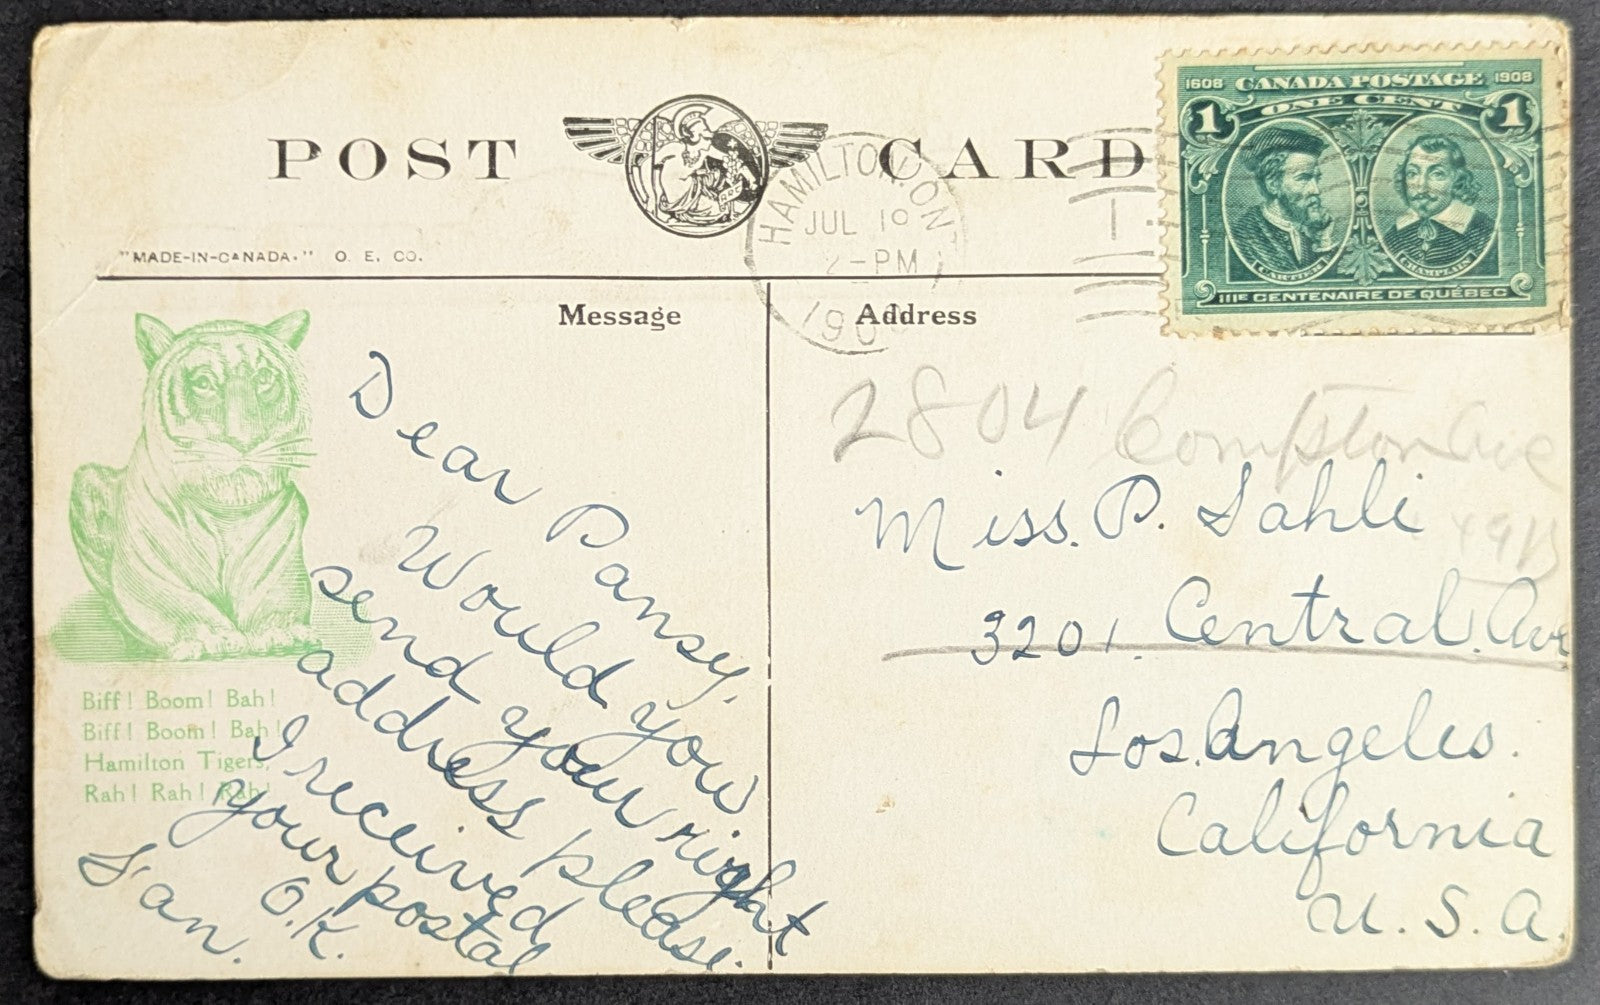 1608 CANADA POSTAGE 1908
1 ONE CENT 1
CARTIER CHAMPLAIN
IIIE CENTENAIRE DE QUÉBEC
POST CARD
HAMILTON. ONT
JUL 10
2-PM
190
"MADE-IN-CANADA." O. E. CO.
Message
Address
Biff! Boom! Bah!
Biff! Boom! Bah!
Hamilton Tigers,
Rah! Rah! Rah!
Dear Pansy,
Would you
send your right
address please.
I received
your postal
O.K.
San.
2804 Compton Ave
Miss. P. Sahli
3201. Central. Ave
Los. Angeles.
California
U. S. A.